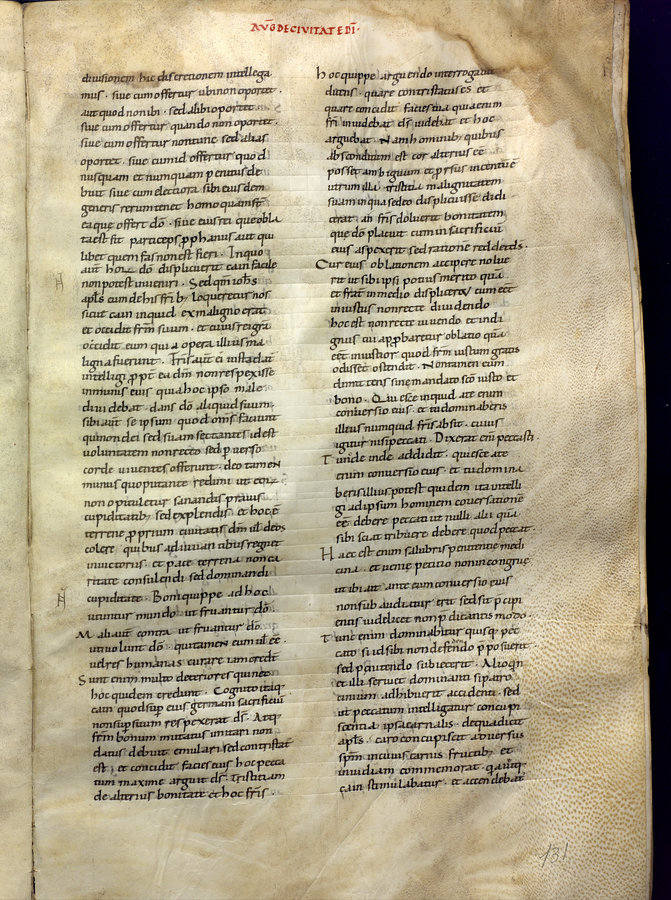 AUG DE CIVITATE DI·
divisionem hic discretionem intellega
mus · sive cum offertur ubi non oportet ·
aut quod non ibi · sed alibi oportet ·
sive cum offertur quando non oportet ·
sive cum offertur non tunc sed alias
oportet · sive cum id offertur quod
nusquam et numquam penitus de
buit sive cum electiora sibi eiusdem
generis rerum tenet homo quam
ea que offert do · sive eius rei que obla
ta est fit particeps pphanus aut qui
libet quem fas non est fieri · In quo
aut horum do displicuerit cain facile
non potest inveniri · Sed qm iohs
apls cum de his frib; loqueretur nos
sicut cain inquid ex maligno erat
et occidit frm suum · et cuius rei gra
occidit eum quia opera illius ma
ligna fuerunt · fris aut ei iusta dat
intelligi ppt ea dm non respexisse
in munus eius quia hoc ipso male
dividebat · dans do aliquid suum ·
sibi aut se ipsum quod oms faciunt
qui non dei sed suam sectantes id est
voluntatem non recto sed perverso
corde viventes offerunt · deo tamen
munus quo putant redimi ut eorum
non opituletur sanandis pravis
cupiditatib; sed explendis · et hoc e
terrene pprium civitatis dm ul deos
colere quibus adiuvantibus regnet
in victoriis · et pace terrena non ca
ritate consulendi sed dominandi
cupiditate · Boni quippe ad hoc
utuntur mundo ut fruantur do ·
Mali aut contra ut fruantur do ·
uti volunt do · qui tamen eum ul ee ·
vel res humanas curare iam credt
Sunt enim multo deteriores qui nec
hoc quidem credunt · Cognito itaq;
cain quod sup eius germani sacrificiu
non sup suum respexerat ds · Atiq;
frem bonum mutatus imitari non
datus debuit emulari sed contristat
est · et concidit facies eius hoc pecca
tum maxime arguit ds · tristitiam
de alterius bonitate et hoc fris ·
hoc quippe arguendo interrogavit
dicens · quare contristatus es et
quare concidit facies tua quia enim
fri invidebat ds videbat et hoc
arguebat · Nam hominib; quibus
absconditum est cor alterius ee
posset ambiguum et prsus incertu
utrum illa tristitia malignitatem
suam in qua se deo displicuisse didi
cerat · an fris doluerit bonitatem
que do placuit cum in sacrificiu
eius aspexerit sed rationem reddens ds ·
Cur eius oblationem accipere nolue
rit ut sibi ipsi potius merito qua
ei frat inmedio displiceret cum eet
iniustus non recte dividendo
hoc est non recte vivendo et indi
gnus cui approbaretur oblatio qua
eet iniustior quod frm iustum gratis
odisset ostendit · Non tamen eum
dimittens sine mandato sco iusto et
bono · Quiesce inquid a te enim
conversio eius et tu dominaberis
illius numquid fris absit · cuius
igitur nisi peccati · Dixerat eni peccasti
Tunc inde addidit · quiesce a te
enim conversio eius · et tu domina
beris illius potest quidem ita intelli
gi ad ipsum hominem conversionem
ee debere peccati ut nulli alii qua
sibi sciat tribuere debere quod peccat ·
Haec est enim salubris penitentie medi
cina · et venie petitio non incongrue
ut ibi ait a te enim conversio eius
non sub audiatur erit sed sit pcipi
entis videlicet non pdicentis modo ·
Tunc enim dominabitur quisq; pec
cato si id sibi non defendendo pposuerit
sed penitendo subiecerit · Alioqn
et illi serviet dominanti si patro
cinium adhibuerit accidenti · sed
ut peccatum intelligatur concupi
scentia ipsa carnalis · de qua dicit
apls · caro concupiscit adversus
spm in cuius carnis fructib; et
invidiam commemorat · qua utiq;
cain stimulabatur · et accendebat
131